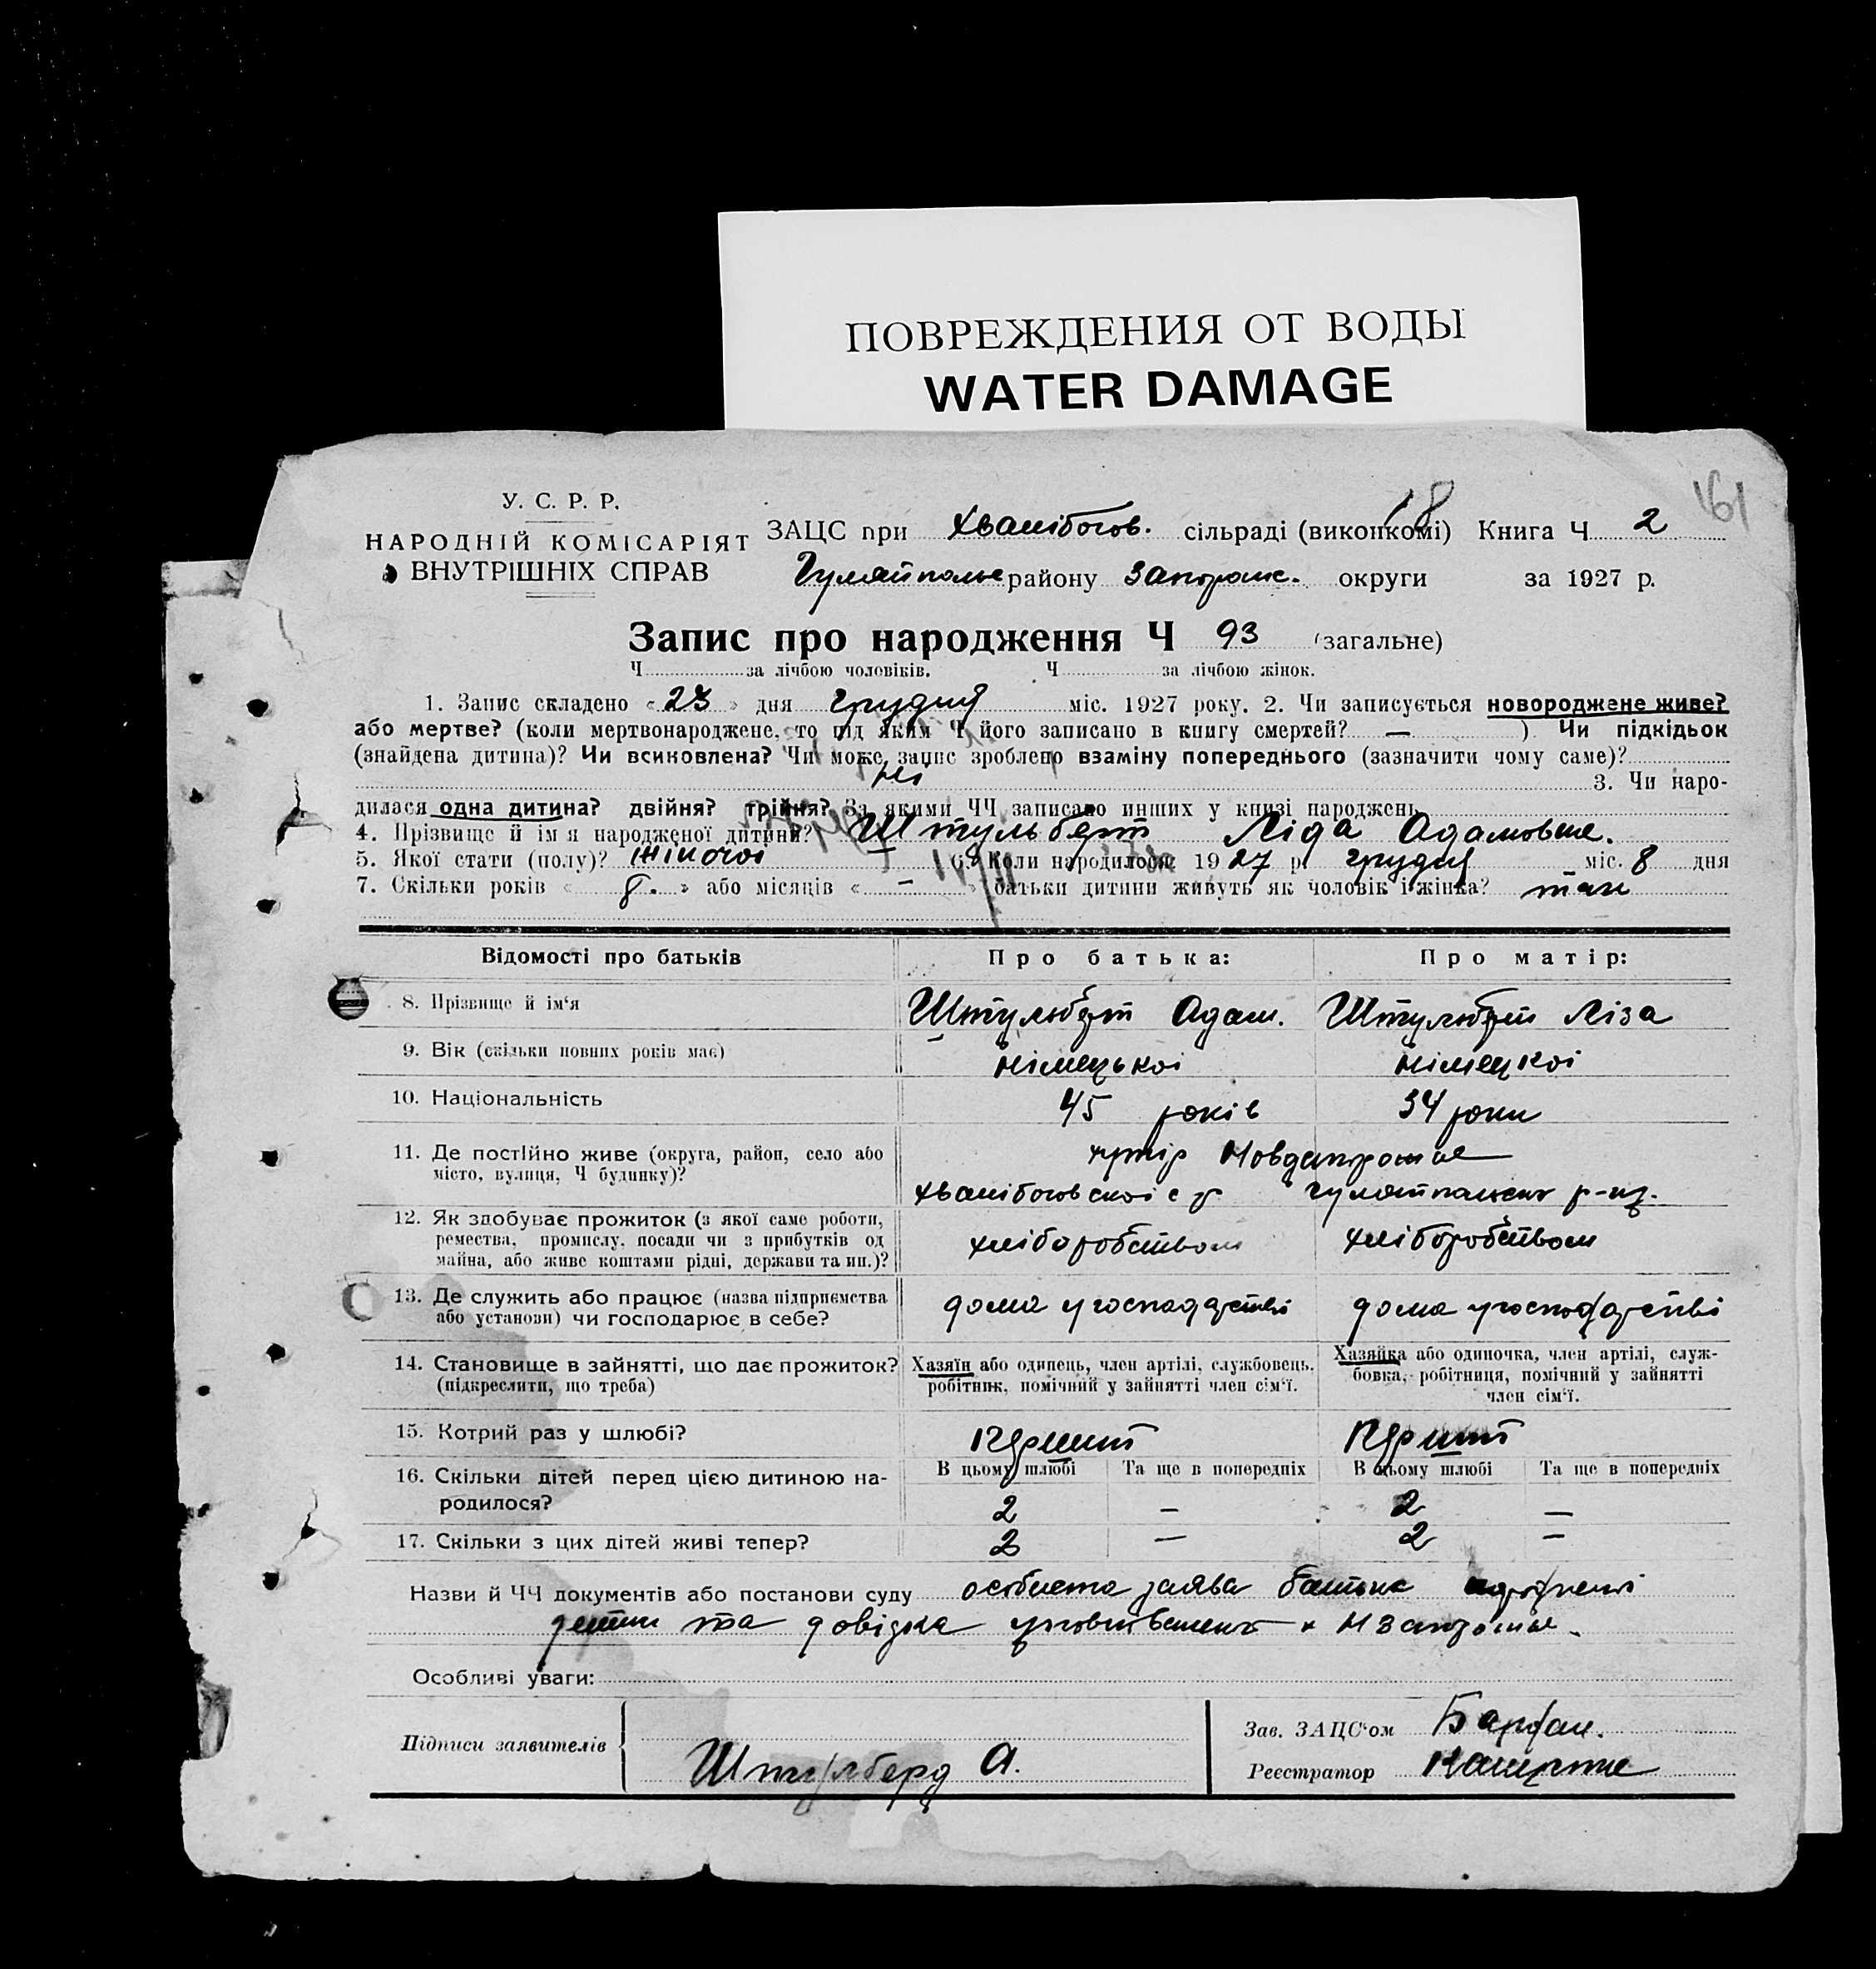 ПОВРЕЖДЕНИЯ ОТ ВОДЫ
WATER DAMAGE
161
18
У. С. Р. Р.
НАРОДНІЙ КОМІСАРІЯТ
ВНУТРІШНІХ СПРАВ
ЗАЦС при Хвалібогов. сільраді (виконкомі) Книга Ч 2
Гуляйполье району Запорож. округи за 1927 р.
Запис про народження Ч 93 (загальне)
Ч за лічбою чоловіків. Ч за лічбою жінок.
1. Запис складено « 23 » дня грудня міс. 1927 року. 2. Чи записується новороджене живе?
або мертве? (коли мертвонароджене, то під яким Ч його записано в книгу смертей? — ) Чи підкідьок
(знайдена дитина)? Чи всиновлена? Чи може запис зроблено взаміну попереднього (зазначити чому саме)?
ні 3. Чи наро-
дилася одна дитина? двійня? трійня? За якими ЧЧ записано инших у книзі народжень
4. Прізвище й ім'я народженої дитини? Штульберт Ліда Адамовне.
5. Якої стати (полу)? жіночоі 6. Коли народилося: 19 27 р. грудня міс. 8 дня
7. Скільки років « 8. » або місяців « — » батьки дитини живуть як чоловік і жінка? так
Відомості про батьків Про батька: Про матір:
8. Прізвище й ім'я Штульберт Адам. Штульберт Ліза
9. Вік (скільки повних років має) німецькоі німецкоі
10. Національність 45 років 34 роки
11. Де постійно живе (округа, район, село або
місто, вулиця, Ч будинку)?
хутір Новозапорожье
Хвалібоговскоі с р Гуляйпольск р-ну.
12. Як здобуває прожиток (з якої саме роботи,
ремества, промислу, посади чи з прибутків од
майна, або живе коштами рідні, держави та ин.)?
хліборобством хліборобством
13. Де служить або працює (назва підприємства
або установи) чи господарює в себе?
дома у господарстві дома у господарстві
14. Становище в зайнятті, що дає прожиток?
(підкреслити, що треба)
Хазяїн або одинець, член артілі, службовець,
робітник, помічний у зайнятті член сім'ї.
Хазяйка або одиночка, член артілі, служ-
бовка, робітниця, помічний у зайнятті
член сім'ї.
15. Котрий раз у шлюбі? Перший Перший
16. Скільки дітей перед цією дитиною на-
родилося?
В цьому шлюбі Та ще в попередніх В цьому шлюбі Та ще в попередніх
2 — 2 —
17. Скільки з цих дітей живі тепер? 2 — 2 —
Назви й ЧЧ документів або постанови суду особиста заява батька
та довідка х Н Запорожье.
Особливі уваги:
Підписи заявителів Штулберд А.
Зав. ЗАЦС'ом
Реєстратор